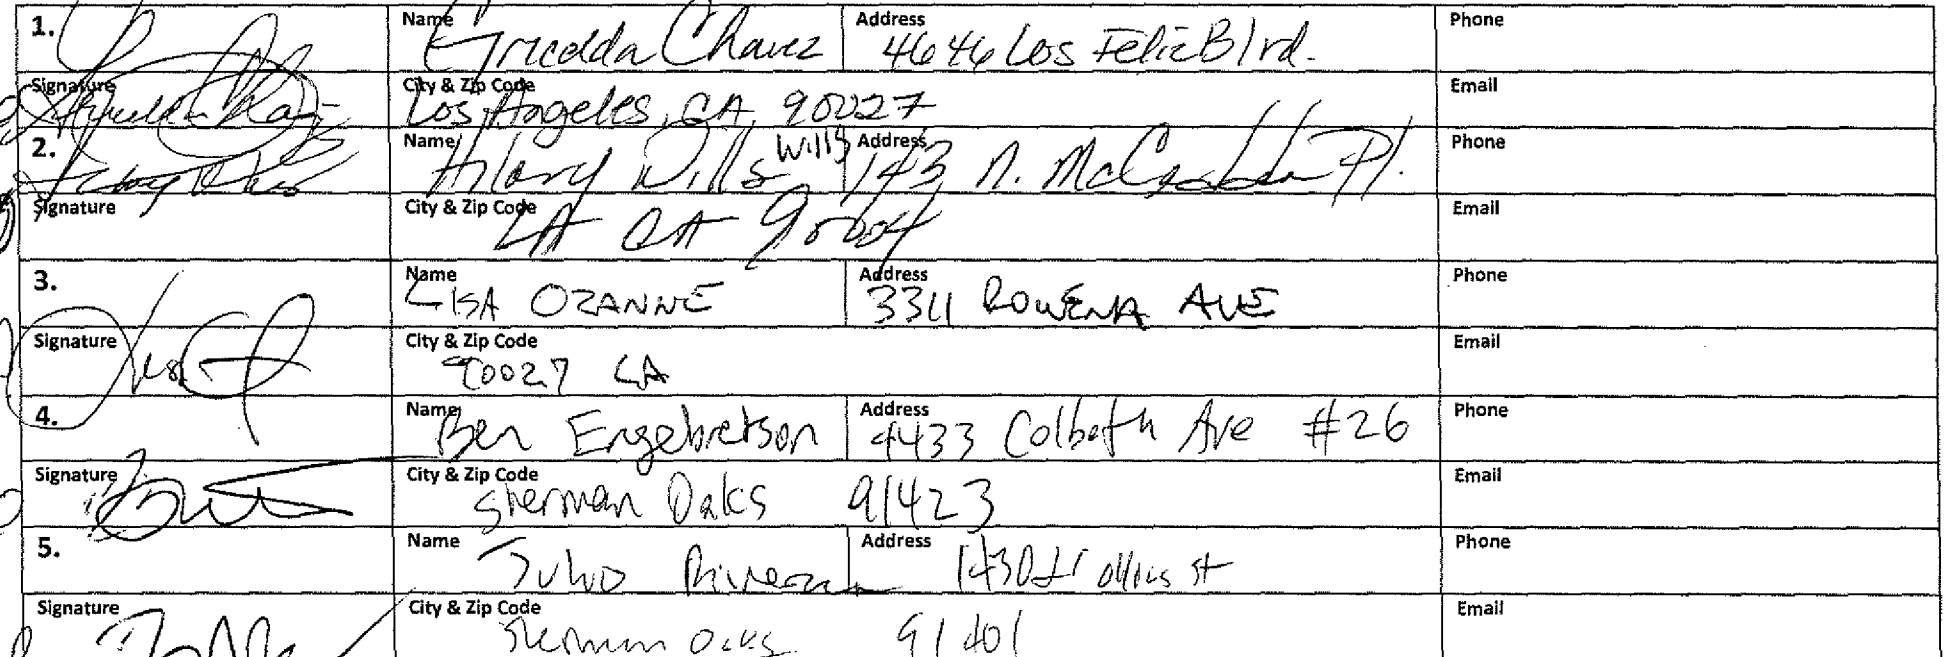 1. Name Gricelda Chavez Address 4646 Los Feliz Blvd. Phone
Signature City & Zip Code Los Angeles, CA, 90027 Email
2. Name Hilary Wills Wills Address 143 N. McCadden Pl. Phone
Signature City & Zip Code LA CA 90004 Email
3. Name LISA OZANNE Address 3311 ROWENA AVE Phone
Signature City & Zip Code 90027 LA Email
4. Name Ben Engebretson Address 4433 Colbath Ave #26 Phone
Signature City & Zip Code Sherman Oaks 91423 Email
5. Name Julio Rivera Address St Phone
Signature City & Zip Code Sherman Oaks 91401 Email